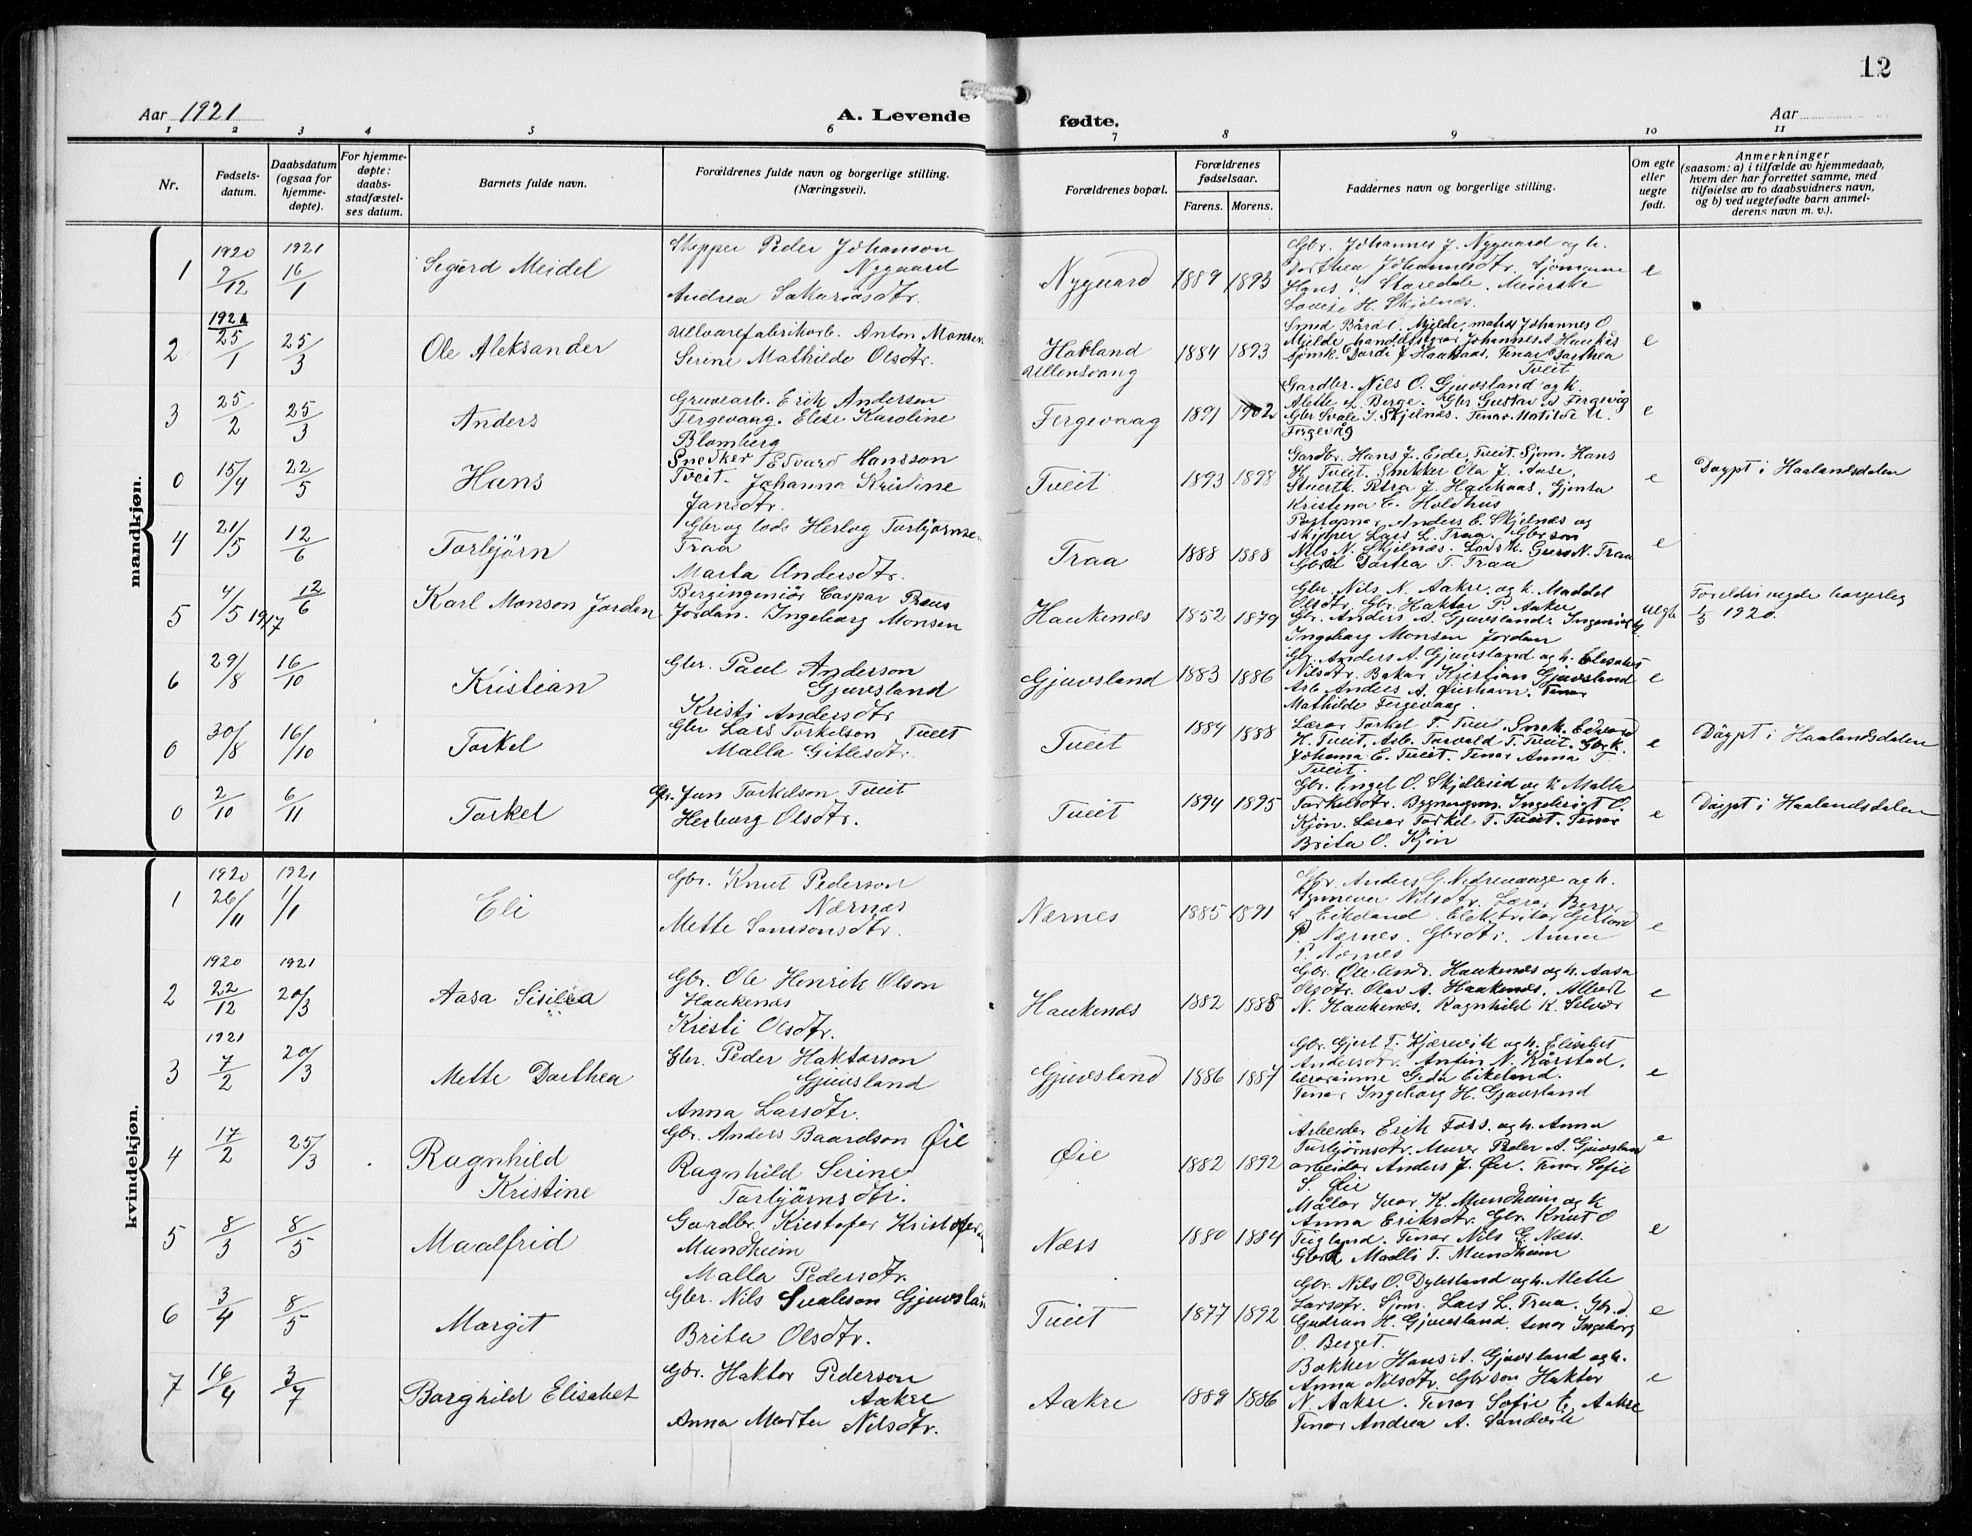 12
Aar 1921 A. Levende fødte. Aar
1 2 3 4 5 6 7 8 9 10 11
Nr. Fødsels-datum. Daabsdatum (ogsaa for hjemme-døpte). For hjemme-døpte: daabs-stadfæstel-ses datum. Barnets fulde navn. Forældrenes fulde navn og borgerlige stilling. (Næringsvei). Forældrenes bopæl. Forældrenes fødselsaar. Farens. Morens. Faddernes navn og borgerlige stilling. Om egte eller uegte født. Anmerkninger (saasom: a) i tilfælde av hjemmedaab, hvem der har forrettet samme, med tilføielse av to daabsvidners navn, og b) ved uegtefødte barn anmel-derens navn m. v.).
mandkjøn.
1 1920 7/12 1921 16/1 Sigurd Meidel Skipper Peder Johanson Nygaard Andrea Sakariasdtr. Nygaard 1889 1893 Gbr. Johannes J. Nygaard og h. Dorthea Johannesdtr. Sjømann Hans Staredde. Meierske Lovise H. Skjelnæs. e
2 1921 25/1 25/3 Ole Aleksander Ullvarefabrikarb. Anton Monsen Serine Mathilde Olsdtr. Haaland Ullensvang 1884 1893 Smed Bård Mjelde, matros Johannes O Mjelde handelsbror Johannes A Haukås Sjmk. Dordi J Haukaas. Tenar Dorthea Tveit e
3 25/2 25/3 Anders Gruvearb. Erik Anderson Fergevaag. Elese Karoline Blomberg Fergevaag 1891 1902 Gardbr. Nils O. Gjuvsland og k. Alette Berge. Gbr Gustav Fergevåg Gbr Svale J. Skjelnæs. Tenar Matilde Fergevåg e
0 15/4 22/5 Hans Snedker Edvard Hansson Tveit. Johanna Kristine Jansdtr. Tveit 1893 1898 Gardbr. Hans J. Eide, Tveit. Sjøm. Hans H. Tveit. Snikker Ola J. Aase. Petra J. Haukaas, Gjenta Kristena E. Holdhus e Døypt i Haalandsdalen
4 21/5 12/6 Torbjørn Gbr og lods Herlog Torbjørnse. Traa Marta Andersdtr. Traa 1888 1888 Postopnar Anders E. Skjelnæs og skipper Lars L. Traa. Gbrson Nils N. Skjelnæs. Lodsk. Guro N. Traa Gbrd Dorthea T. Traa e
5 4/5 1917 12/6 Karl Monson Jordan Bergingeniør Caspar Jordan. Ingeborg Monsen Haukenæs 1852 1879 Gbr. Nils N. Aakre, og k. Maddel Olsdtr. Gbr. Haktor P. Aakre Gbr. Anders A. Gjuvsland. Ingeborg Monsen Jordan uegte Foreldri vigde borgerleg 1/5 1920.
6 29/8 16/10 Kristian Gbr. Paul Anderson Gjuvsland Kristi Andersdtr Gjuvsland 1883 1886 Gbr. Anders A. Gjuvsland og h. Elisabet Nilsdtr. Bakar Kristian Gjuvsland Arb. Anders A. Øierhavn. Tenar Mathilde Fergevaag. e
0 30/8 16/10 Torkel Gbr Lars Torkelson Tveit Malla Gitlesdtr. Tveit 1884 1888 Lærar Torkel T. Tveit Smk. Edvard H. Tveit, Arb. Torvald T. Tveit. Gbrk. Johanna E. Tveit. Tenar Anna T Tveit. e Døypt i Haalandsdalen
0 2/10 6/11 Torkel Gbr. Jan Torkelson Tveit Herborg Olsdtr. Tveit 1894 1895 Gbr. Engel O. Skjelbreid og k Malla Torkelsdtr. Bygningsm. Ingebrigt O. Kjøn. Lærar Torkel T. Tveit. Tenar Brita O. Kjøn e Døypt i Haalandsdalen
kvindekjøn.
1 1920 26/11 1921 1/1 Eli Gbr. Knut Pederson Nærnæs Mette Samsonsdtr. Nærnes 1885 1891 Gbr. Anders G. Nedrevange og h. Synnever Nilsdtr. Lærar Berge L Eikeland. Elektriker P. Nærnes. Gbrdtr. Anna P. Nærnes e
2 1920 22/12 1921 20/3 Aasa Sisilea Gbr. Ole Henrik Olson Haukenæs Kristi Olsdtr. Haukenæs 1882 1888 Gbr. Ole Andr. Haukenæs og h. Aasa Olsdtr. Olav A. Haukenæs. Albert N. Haukenæs. Ragnhild K. Selvær e
3 1921 7/2 20/3 Mette Dorthea Gbr. Peder Haktorson Gjuvsland Anna Larsdtr. Gjuvsland 1886 1887 Gbr. Gjert T. Kjærevik og h. Elisabet Andersdtr. Anfin N. Kårstad. Lærarinne Gida Eikeland. Tenar Ingeborg H. Gjuvsland e
4 17/2 25/3 Ragnhild Kristine Gbr. Anders Baardson Øie Ragnhild Serine Torbjørnsdtr. Øie 1882 1892 Arbeider Erik Foss. og h. Anna Torbjørnsdtr. Murer Peder A. Gjuvsland arbeider Anders J. Øie. Tenar Sofie S. Øie e
5 8/3 8/5 Maalfrid Gardbr. Kristofer Kristofers. Mundheim Malla Pedersdtr. Næss 1880 1884 Målar Ivar K. Mundheim og k Anna Eriksdtr. Gbr. Knut O Teigland. Tenar Nils G. Næss. Gbrk Madli T. Mundheim e
6 3/4 8/5 Margit Gbr. Nils Svaleson Gjuvsland Brita Olsdtr. Tveit 1877 1892 Gbr. Nils O. Dybsland og h. Mette Larsdtr. Sjøm. Lars L. Traa. Gbr.d. Gudrun H. Gjuvsland. tenar Ingeborg O. Berget. e
7 16/4 3/7 Borghild Elisabet Gbr. Haktor Pederson Aakre Anna Marta Nilsdtr. Aakre 1889 1886 Bakker Hans A. Gjuvsland og h. Anna Nilsdtr. Gbrson Haktor N. Aakre. Tenar Sofie E. Aakre Tenar Andrea A. Sandvik e